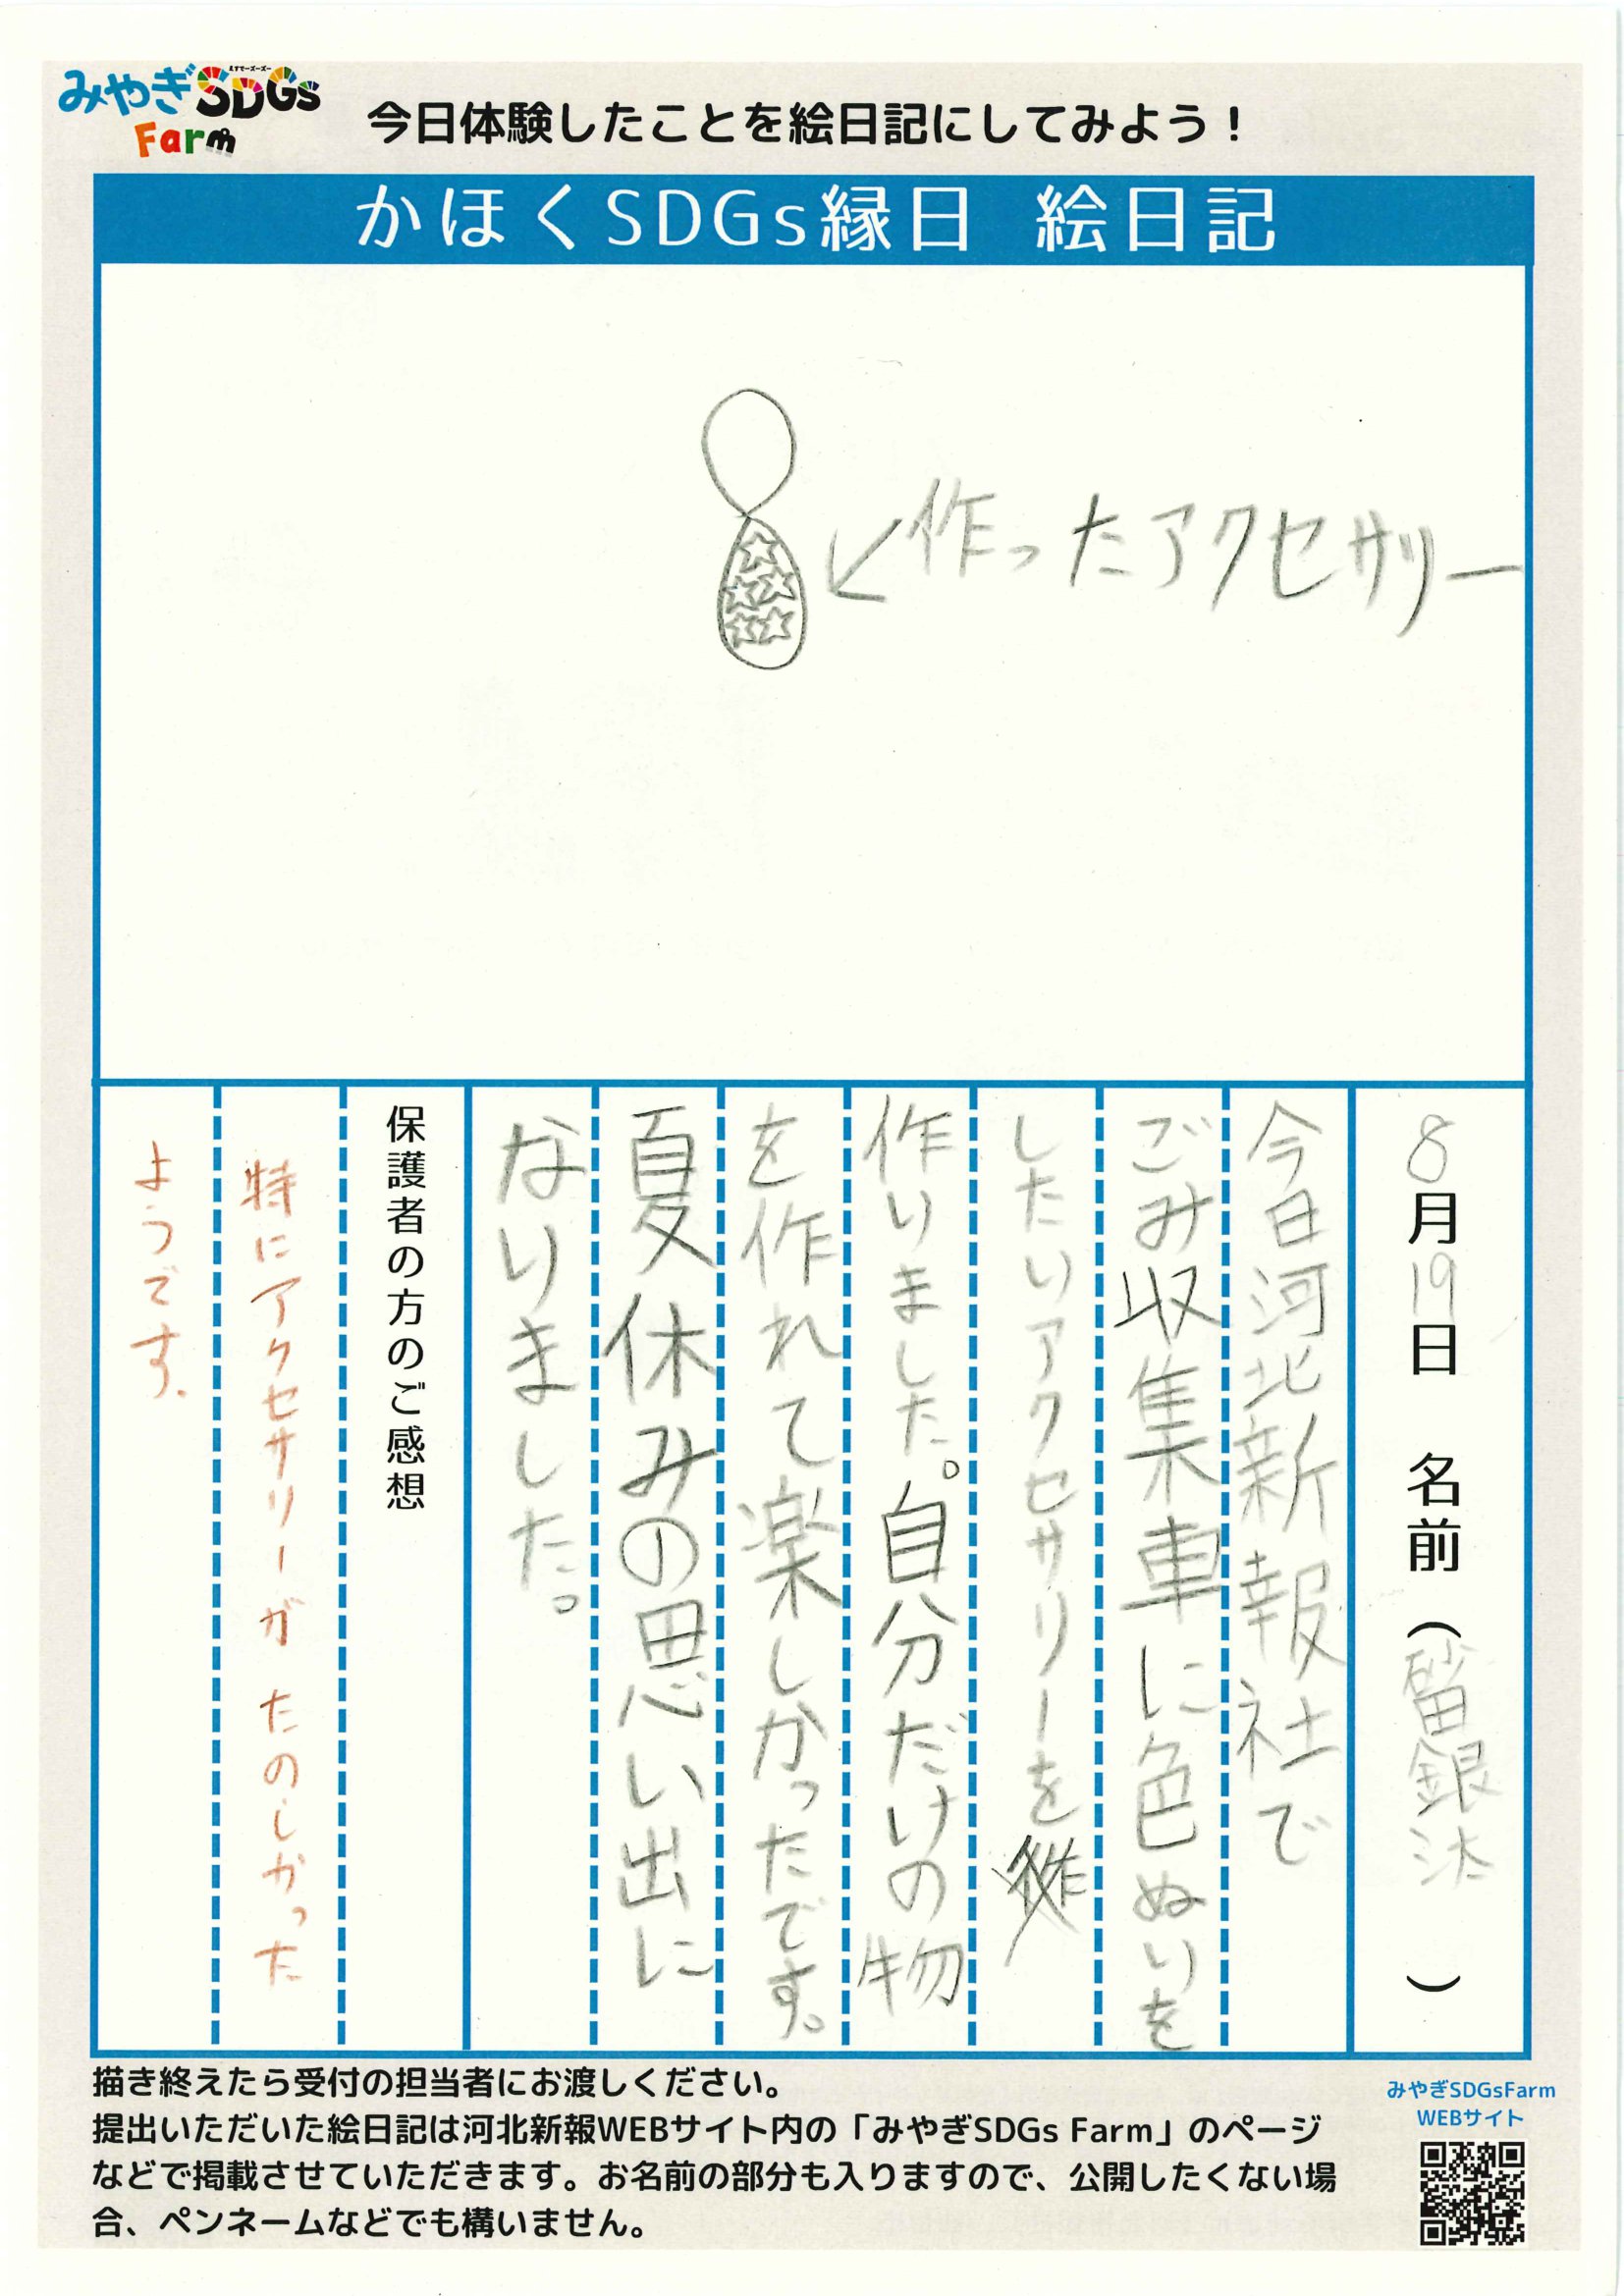 みやぎSDGs
Farm
今日体験したことを絵日記にしてみよう！
かほくSDGs縁日 絵日記
作ったアクセサリー
8月19日 名前（ 銀汰）
今日河北新報社で
ごみ収集車に色ぬいを
したりアクセサリーを
作りました。自分だけの物
を作れて楽しかったです。
夏休みの思い出に
なりました。
保護者の方のご感想
特にアクセサリーが たのしかった
ようです.
描き終えたら受付の担当者にお渡しください。
提出いただいた絵日記は河北新報WEBサイト内の「みやぎSDGs Farm」のページ
などで掲載させていただきます。お名前の部分も入りますので、公開したくない場
合、ペンネームなどでも構いません。
みやぎSDGsFarm
WEBサイト